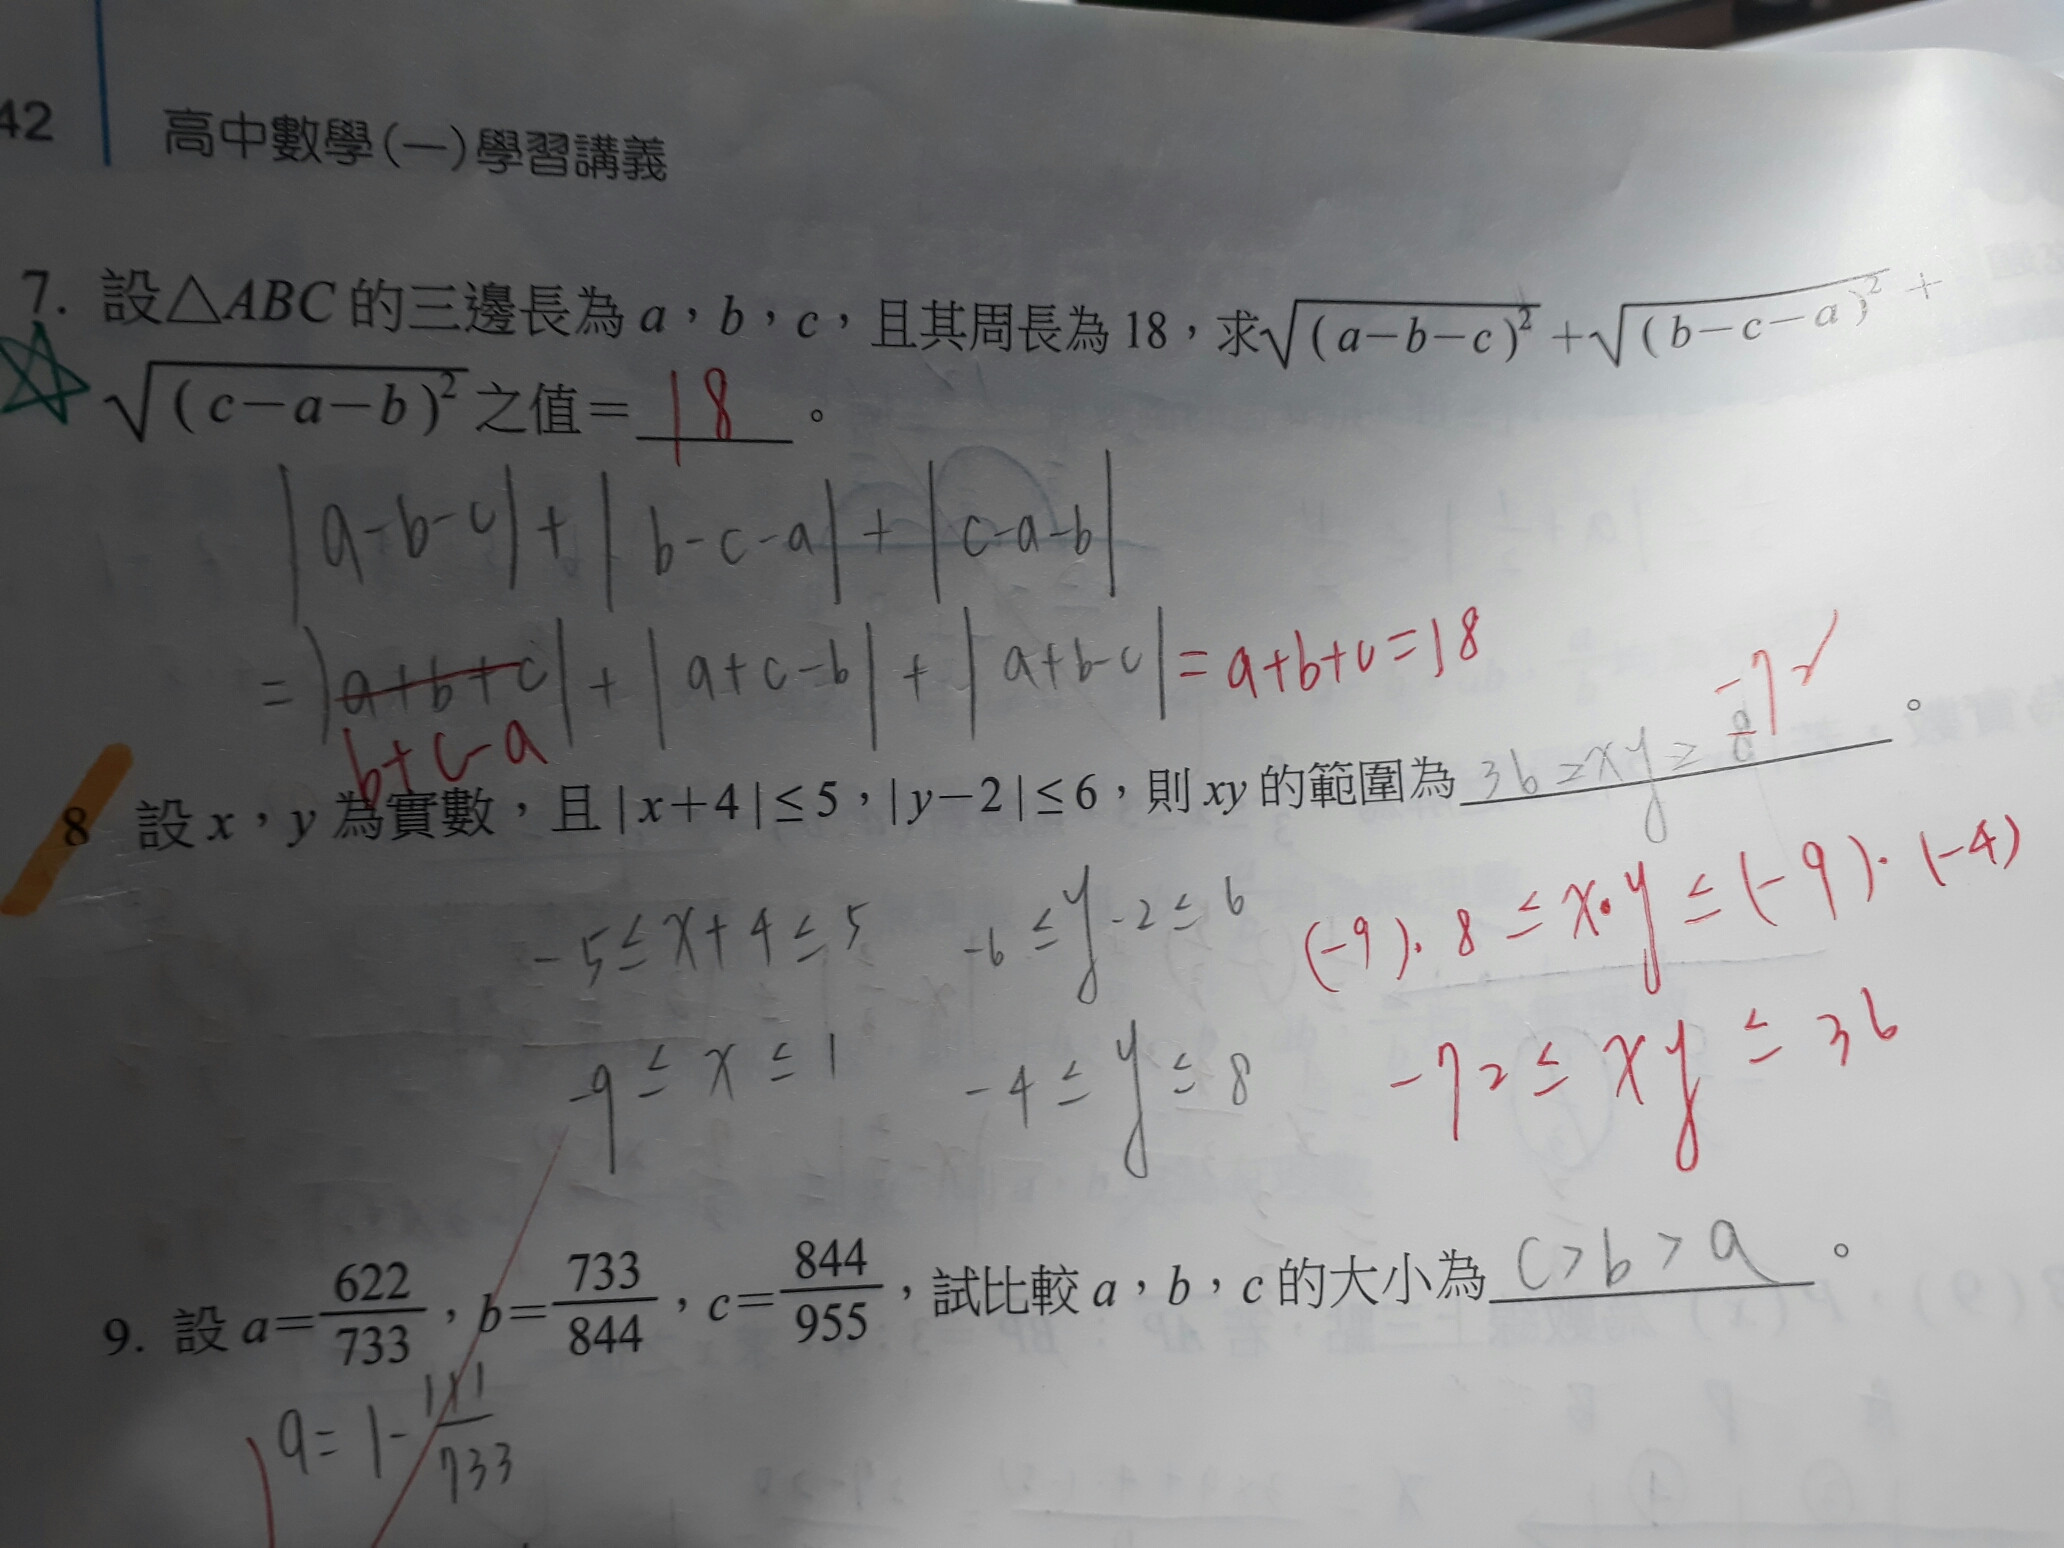 42 高中數學(一)學習講義
7. 設△ABC的三邊長為a,b,c,且其周長為18,求√(a-b-c)² + √(b-c-a)² +
√(c-a-b)² 之值= 18 。
|a-b-c| + |b-c-a| + |c-a-b|
= |a+b+c| + |a+c-b| + |a+b-c| = a+b+c=18
b+c-a
-72
8 設x,y為實數,且|x+4|≤5,|y-2|≤6,則xy的範圍為 36≥xy≥ 。
-5≤x+4≤5 -6≤y-2≤6 (-9)·8≤x·y≤(-9)·(-4)
-9≤x≤1 -4≤y≤8 -72≤xy≤36
9. 設a=622/733,b=733/844,c=844/955,試比較a,b,c的大小為 c>b>a 。
a=1-111/733